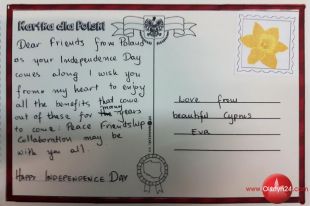 Kartka dla Polski
Dear Friends from Poland
as your Independence Day
comes along I wish you
from my heart to enjoy
all the benefits that come
out of these for many years
to come. Peace Friendship
Collaboration may be
with you all.
HAPPY INDEPENDENCE DAY
Love from
beautiful Cyprus
Eva
www.Olsztyn24.com